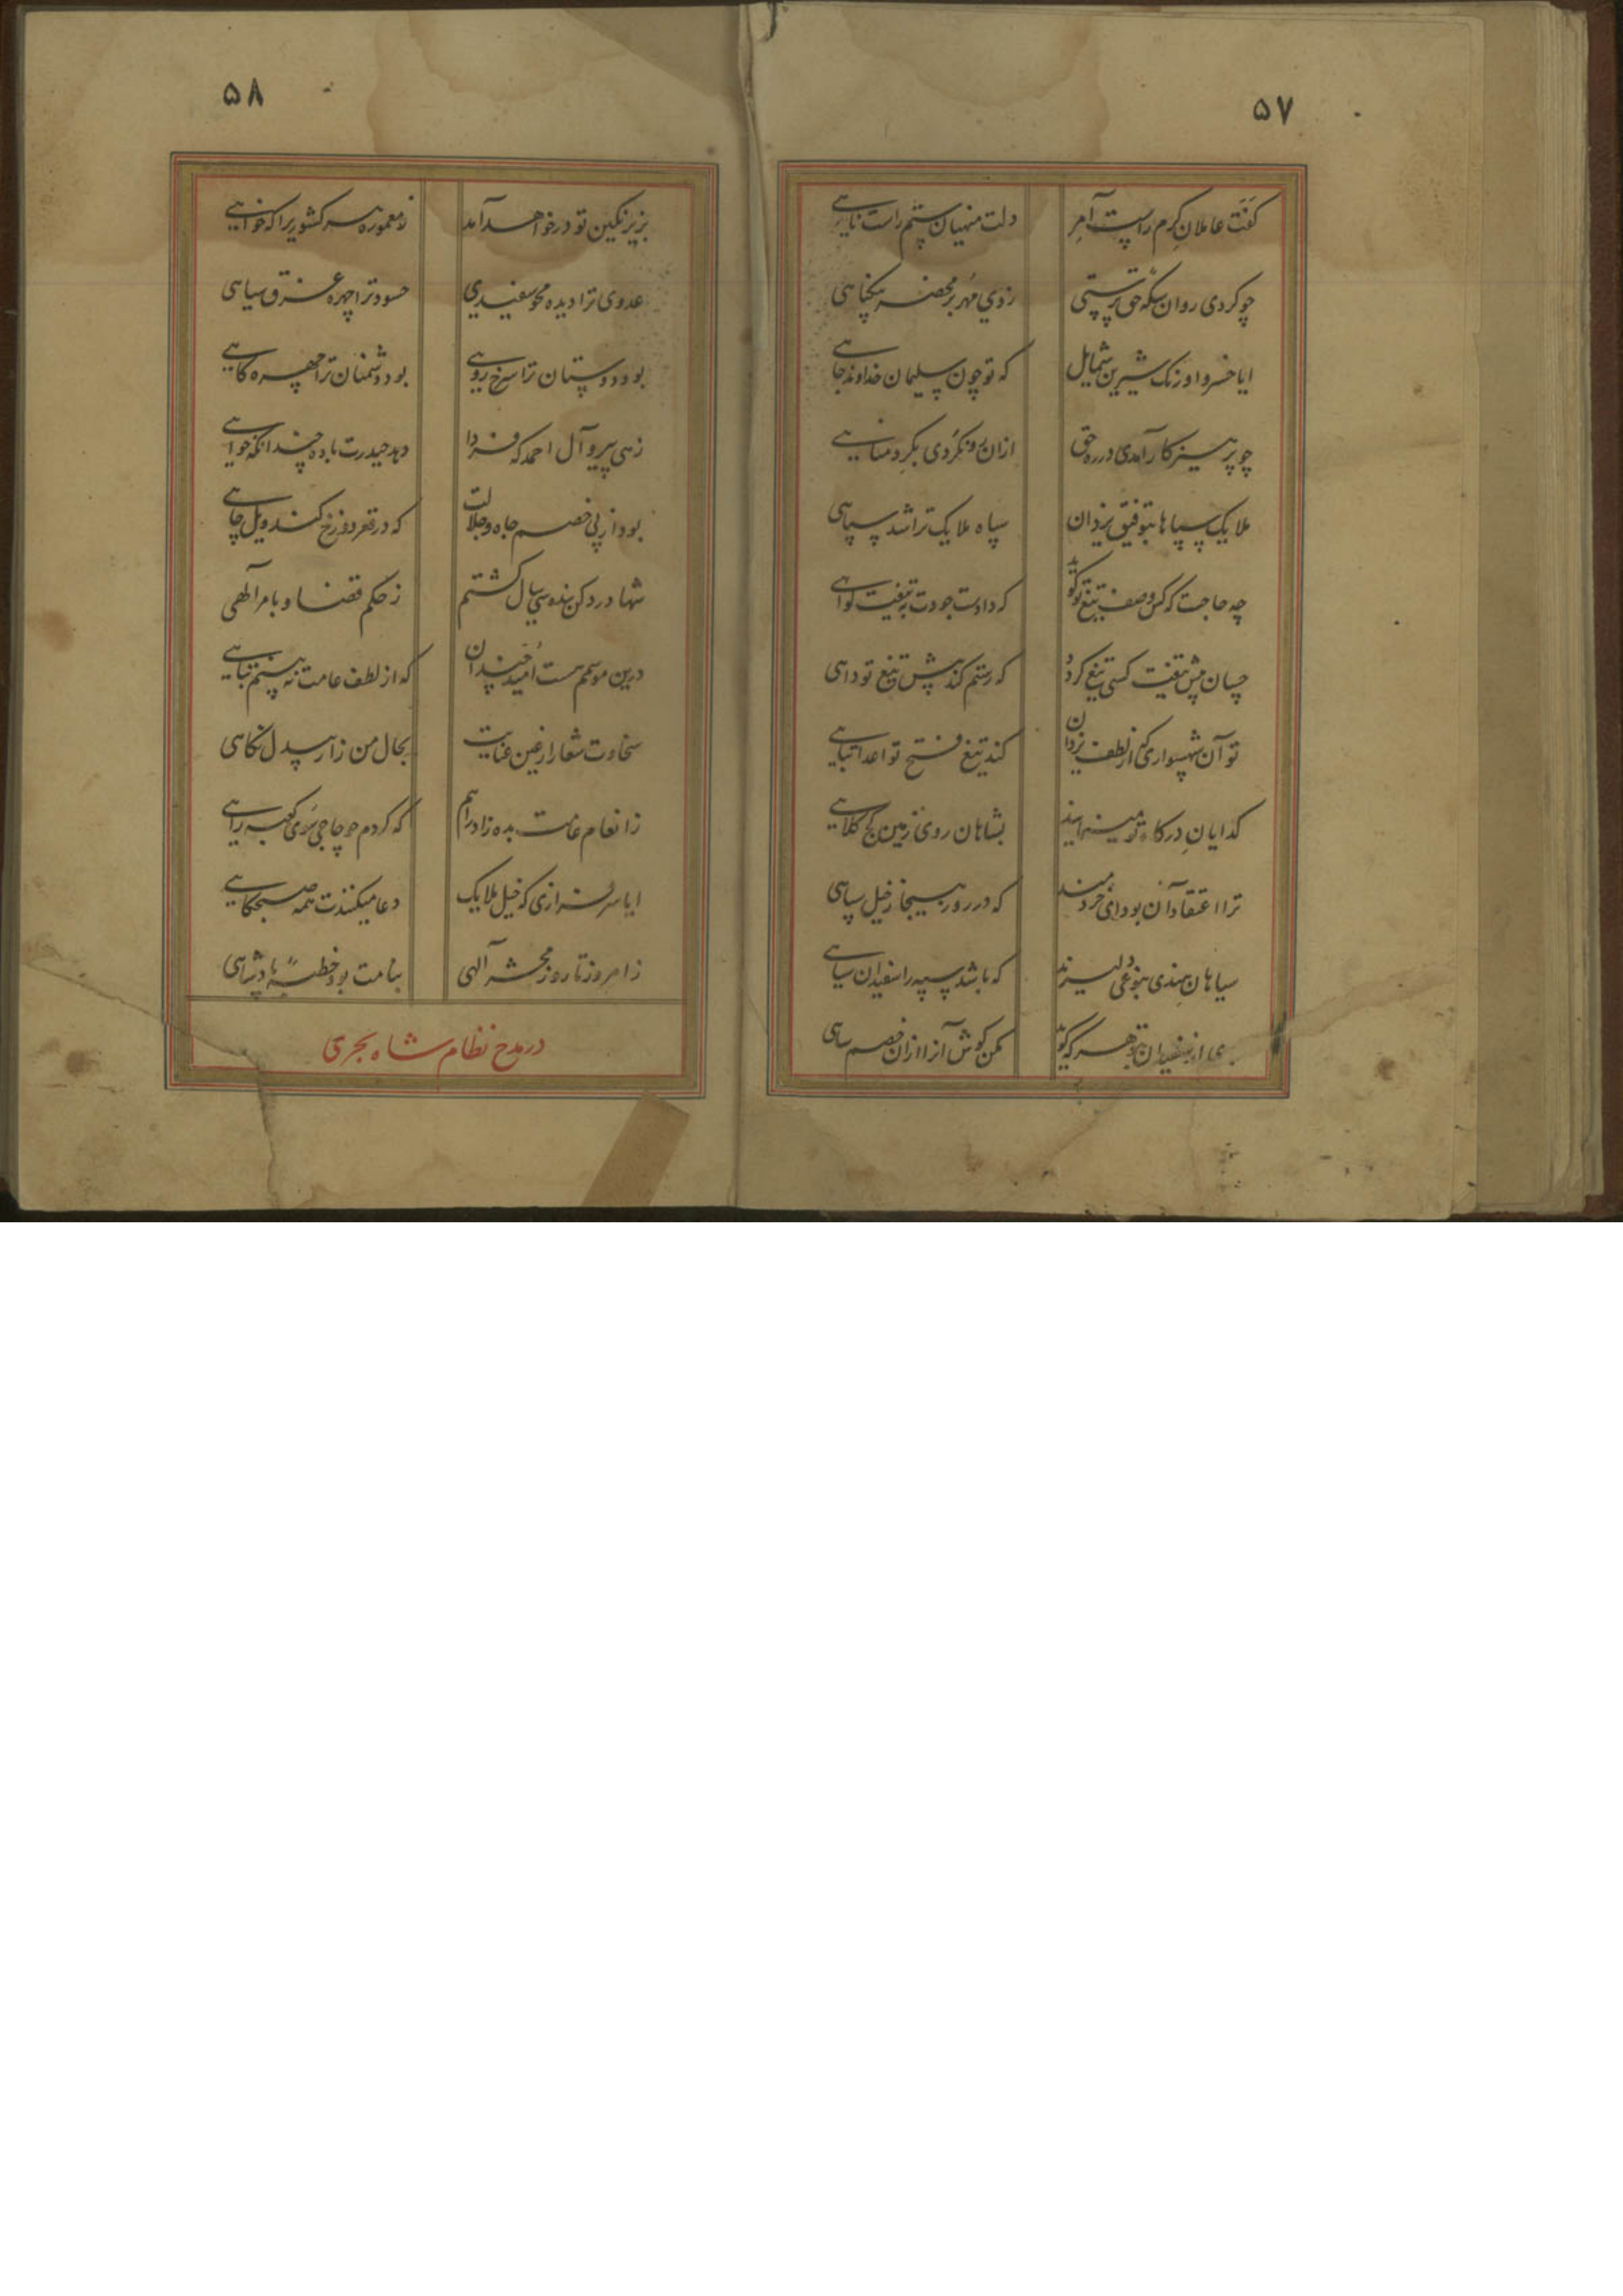 ۵۷
کفت عاملان کرم راست آمر دلت منهیان ستم راست ناهی
چو کردی روان سکه حق پرستی زدی مهر بر محضر بیکناهی
ایا خسرو اورنک شیرین شمایل که تو چون سلیمان خداوند جاهی
چو پرهیزکار آمدی در ره حق ازان رو نکردی بکرد مناهی
ملایک سپاها بتوفیق یزدان سپاه ملایک ترا شد سپاهی
چه حاجت که کس وصف تیغ تو کوید که دادست جودت به تیغت کواهی
چسان پیش تیغت کسی تیغ کردد که رستم کند پیش تیغ تو داهی
تو آن شهسواری که از لطف یزدان کند تیغ فتح تو اعدا تباهی
کدایان درکاه تو مینمایند بشاهان روی زمین کج کلاهی
ترا اعتقاد آن بود ای خردمند که در روز هیجا ز خیل سپاهی
سیاهان هندی بنوعی دلیرند که باشد سپه را سفیدان سیاهی
بدی از سفیدان بتو هر که کوید مکن کوش آنرا ازان خصم ساهی
۵۸
بزیر نکین تو در خواهد آمد ز معموره هر کشوریرا که خواهی
عدوی ترا دیده محو سفیدی حسود ترا چهره غرق سیاهی
بود دوستان ترا سرخ رویی بود دشمنان ترا چهره کاهی
زهی پیرو آل احمد که فردا دهد حیدرت باده چندانکه خواهی
بود از پی خصم جاه و جلالت که در قعر دوزخ کند ویل چاهی
شها در دکن بنده سی سال کشتم ز حکم قضا و بامر آلهی
درین موسمم هست امید چندان که از لطف عامت نه بینم تباهی
سخاوت شعارا ز عین عنایت بحال من زار بیدل نکاهی
ز انعام عامت بده زاد راهم که کردم چو حاجی سوی کعبه راهی
ایا سرفرازی که خیل ملایک دعا میکنندت همه صبحکاهی
ز امروز تا روز محشر آلهی بنامت بود خطبهٔ پادشاهی
در مدح نظام شاه بحری